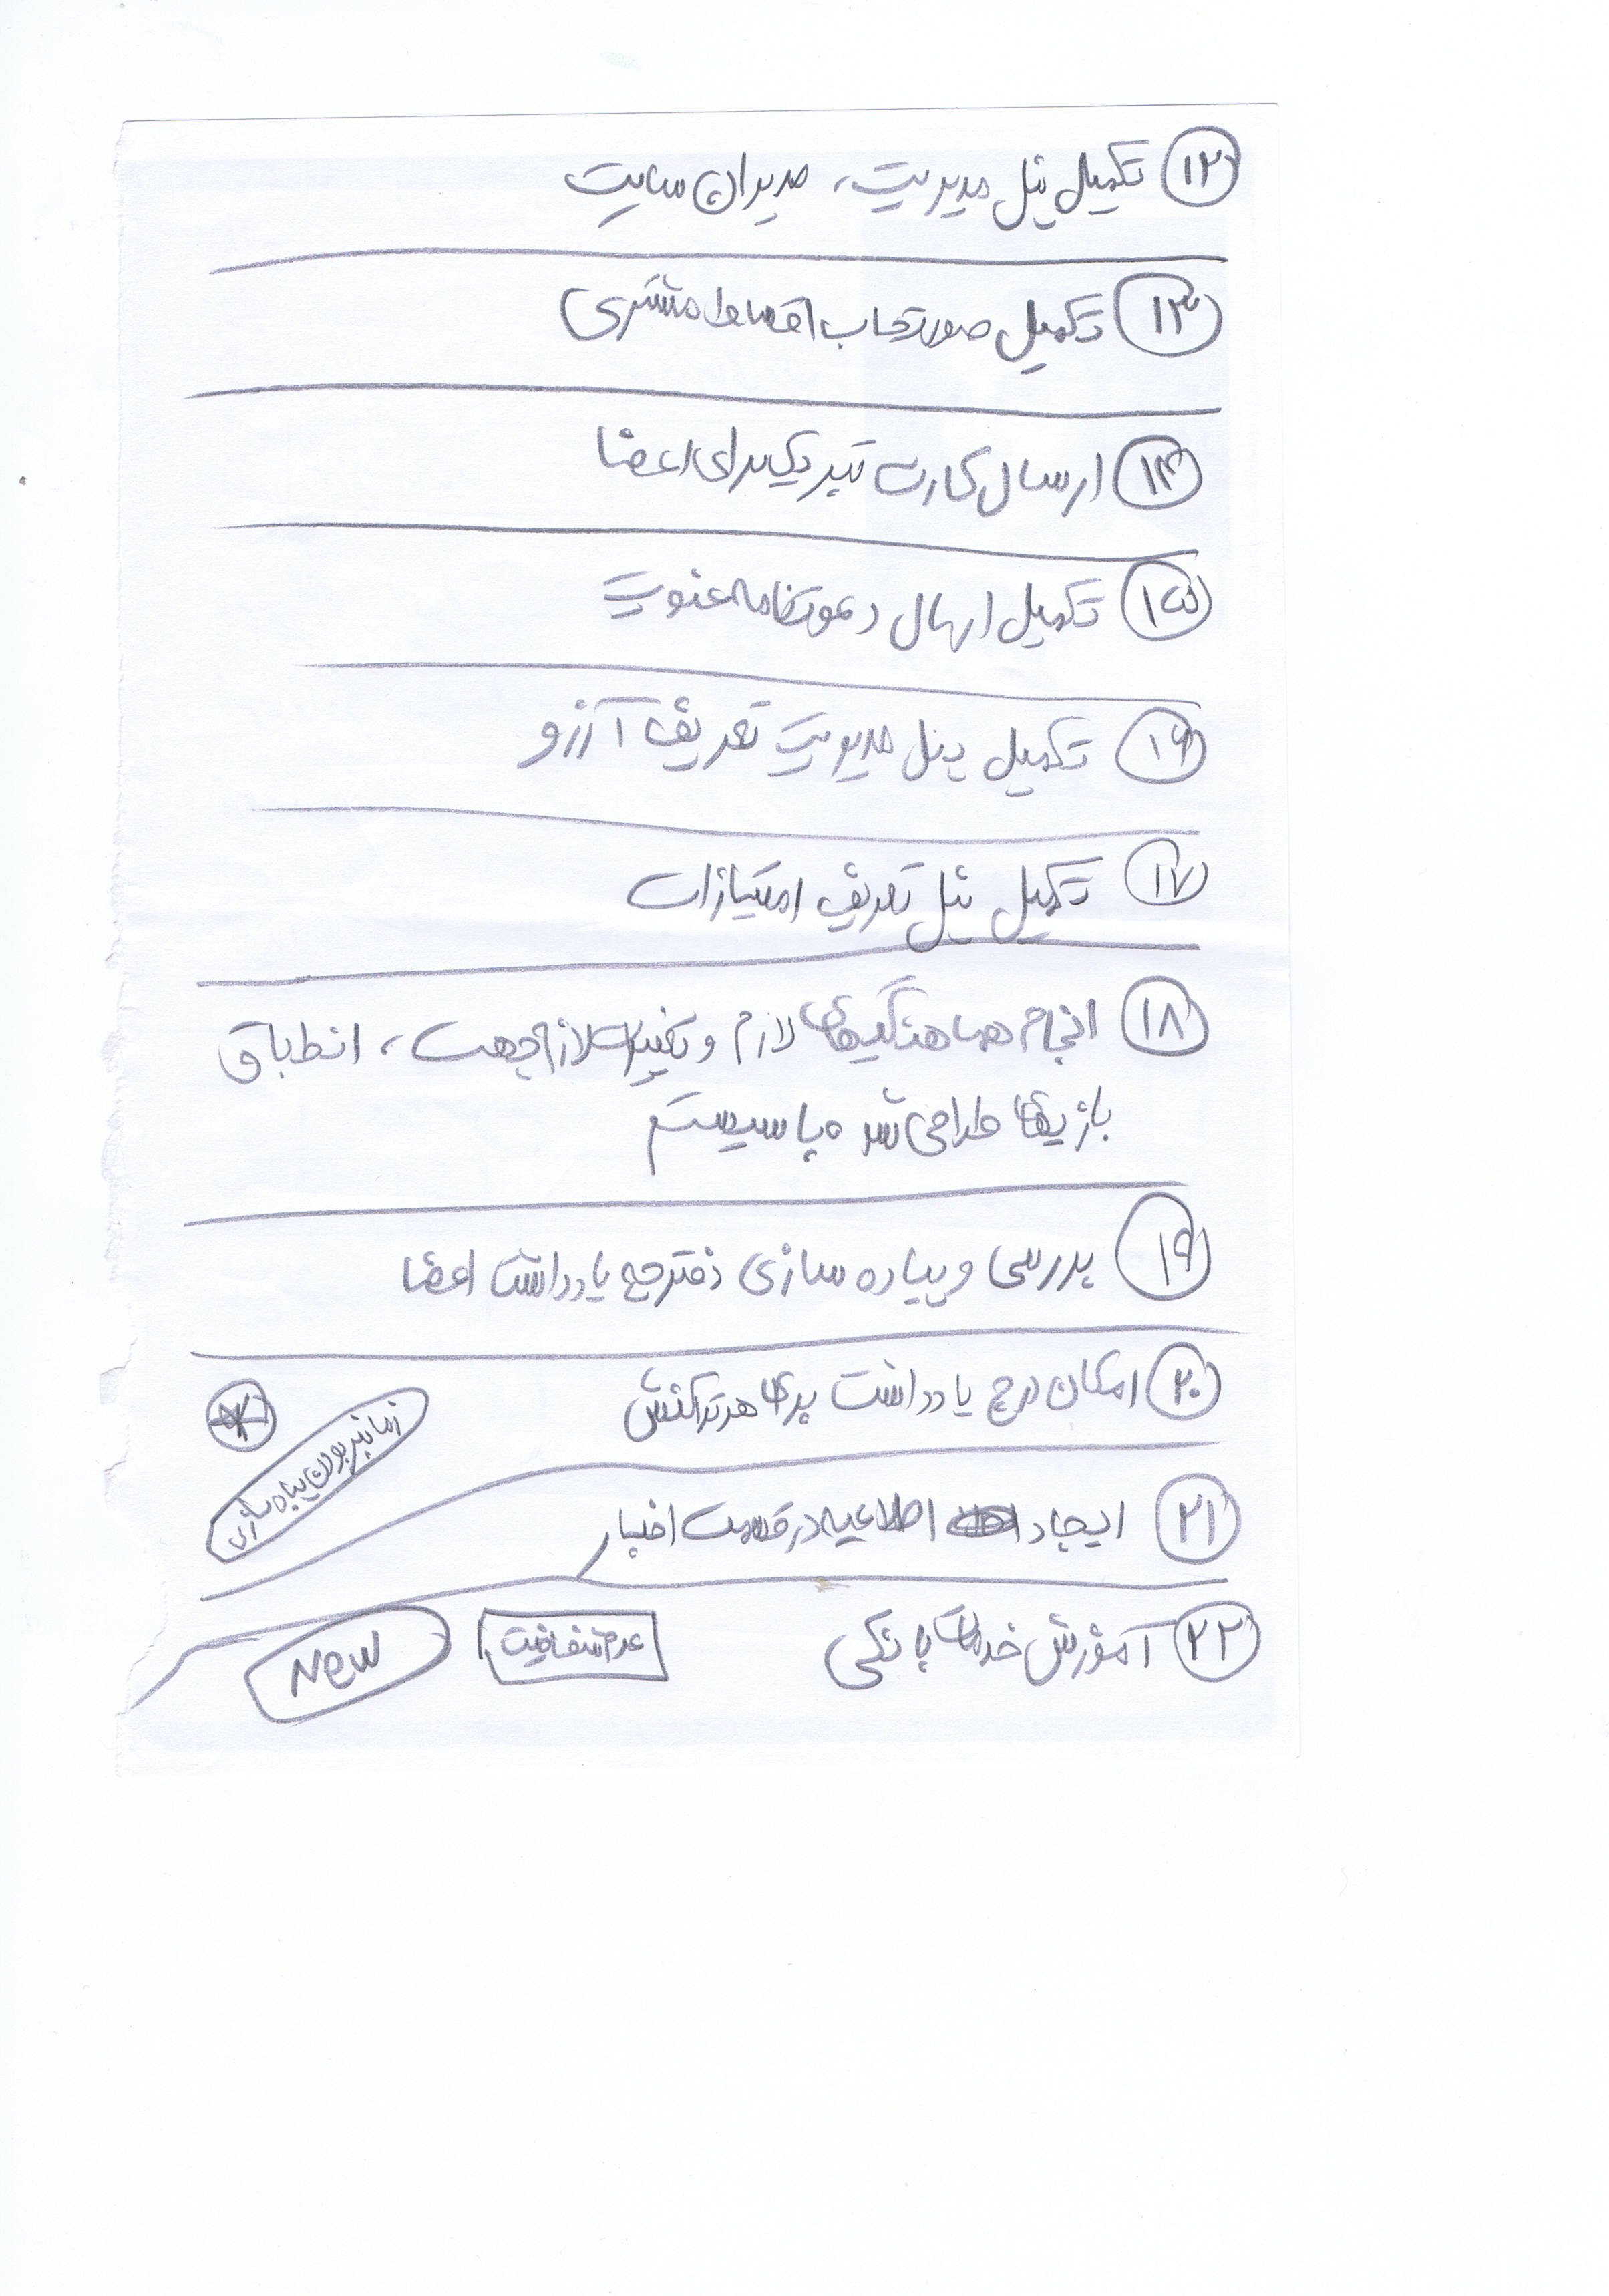 ۱۲ تکمیل پنل مدیریت، مدیران سایت
۱۳ تکمیل صورتحساب اقساط مشتری
۱۴ ارسال کارت تبریک برای اعضا
۱۵ تکمیل ارسال دعوتنامه عضویت
۱۶ تکمیل پنل مدیریت تعریف آرزو
۱۷ تکمیل پنل تعریف امتیازات
۱۸ انجام هماهنگیهای لازم و تغییرات لازم جهت، انطباق
بازیهای طراحی شده با سیستم
۱۹ بررسی و پیاده سازی دفترچه یادداشت اعضا
۲۰ امکان درج یادداشت برای هر تراکنش
زمانبر بودن پیاده سازی
۲۱ ایجاد اطلاعیه در قسمت اخبار
۲۲ آموزش خدمات بانکی
عدم شفافیت
New